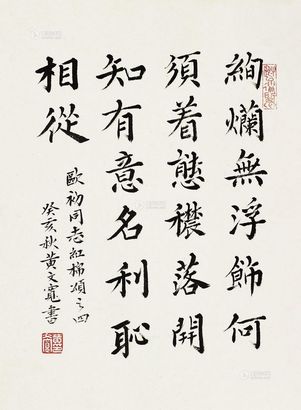 絢爛無浮飾何
須着態穠落開
知有意名利恥
相從
歐初同志紅棉頌之四
癸亥秋黄文寬書